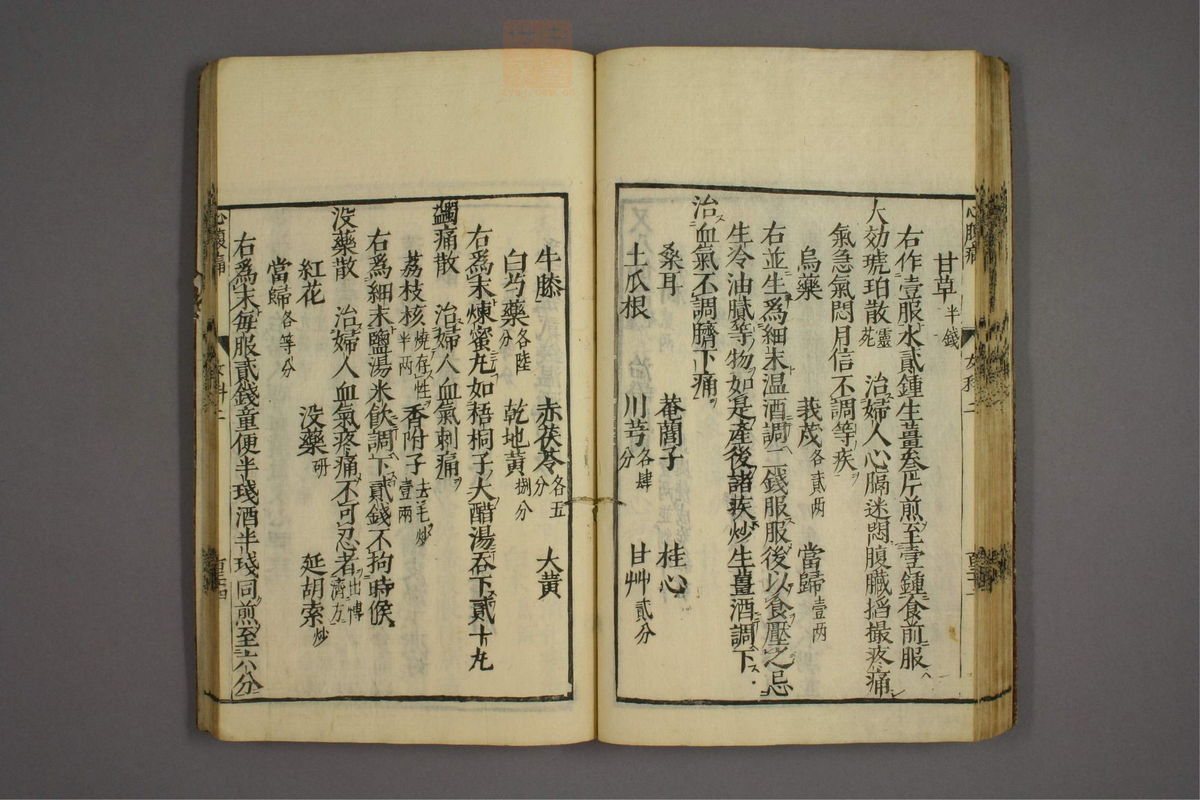 甘草半錢
右作壹服水貳鍾生薑叄斤煎至壹鍾食前服
大効琥珀散靈死 治婦人心膈迷悶腹臟搯撮疼痛
氣急氣悶月信不調等疾
烏藥 莪茂各貳兩 當歸壹兩
右並生爲細末温酒調二錢服服後以食壓之忌
生冷油膩等物如是產後諸疾炒生薑酒調下
治血氣不調臍下痛
桑耳 菴䕡子 桂心
土瓜根 川芎各肆分 甘艸貳分
牛膝 赤茯苓各五分 大黄
白芍藥各陸分 乾地黄捌分
右爲末煉蜜丸如梧桐子大醋湯吞下貳十丸
蠲痛散 治婦人血氣刺痛
荔枝核燒存性半兩 香附子去毛炒壹兩
右爲細末鹽湯米飲調下貳錢不拘時候
没藥散 治婦人血氣疼痛不可忍者出博濟方
紅花 没藥研 延胡索炒
當歸各等分
右爲末每服貳錢童便半琖酒半琖同煎至六分
心腹痛 女科二